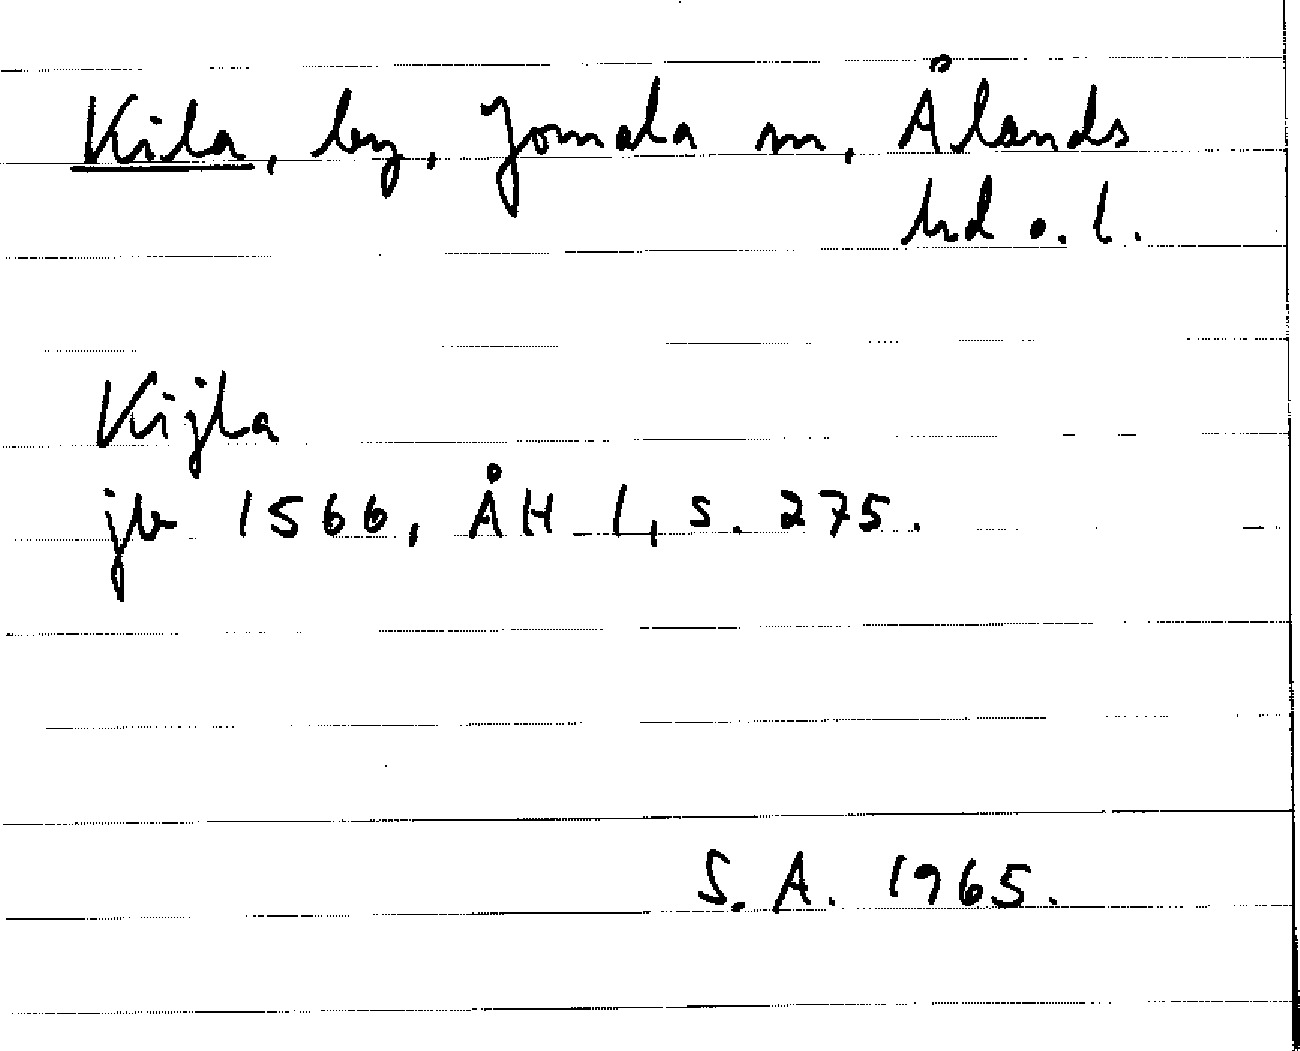 Kila, by, Jomala sn, Ålands
hd o. l.
Kijla
jb 1566, ÅH I, s. 275.
S. A. 1965.